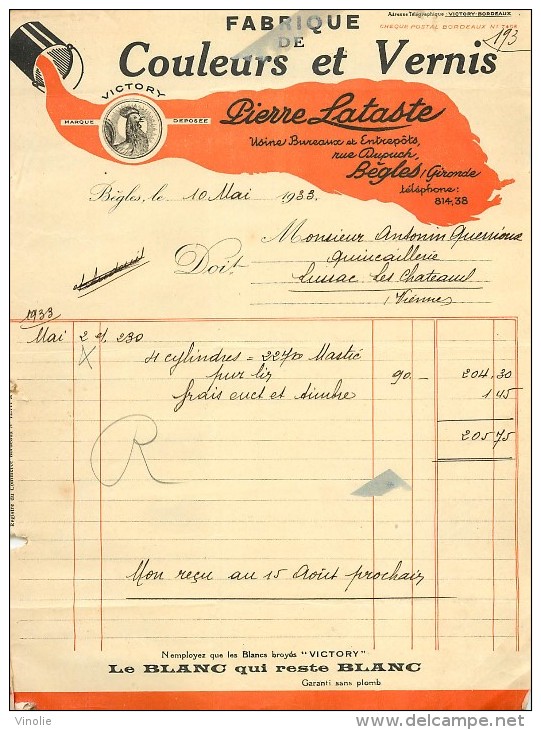 Adresse Télégraphique: VICTORY-BORDEAUX
CHEQUE POSTAL BORDEAUX N° 7458
193
FABRIQUE
DE
Couleurs et Vernis
VICTORY
MARQUE DEPOSÉE
Pierre Lataste
Usine Bureaux et Entrepôts,
rue Dupuch,
Bègles (Gironde
téléphone:
814,38
Bègles, le 10 Mai 1933.
Monsieur Antonin
Doit Quincaillerie
Lussac Les Chateaux
(Vienne)
1933
Mai 2 c/. 230
4 cylindres = 227 Mastic
pur lin 90.— 204.30
frais enct et timbre 1 45
205 75
R
Mon reçu au 15 Août prochain
N'employez que les Blancs broyés "VICTORY"
Le BLANC qui reste BLANC
Garanti sans plomb
Vinolie
www.delcampe.net